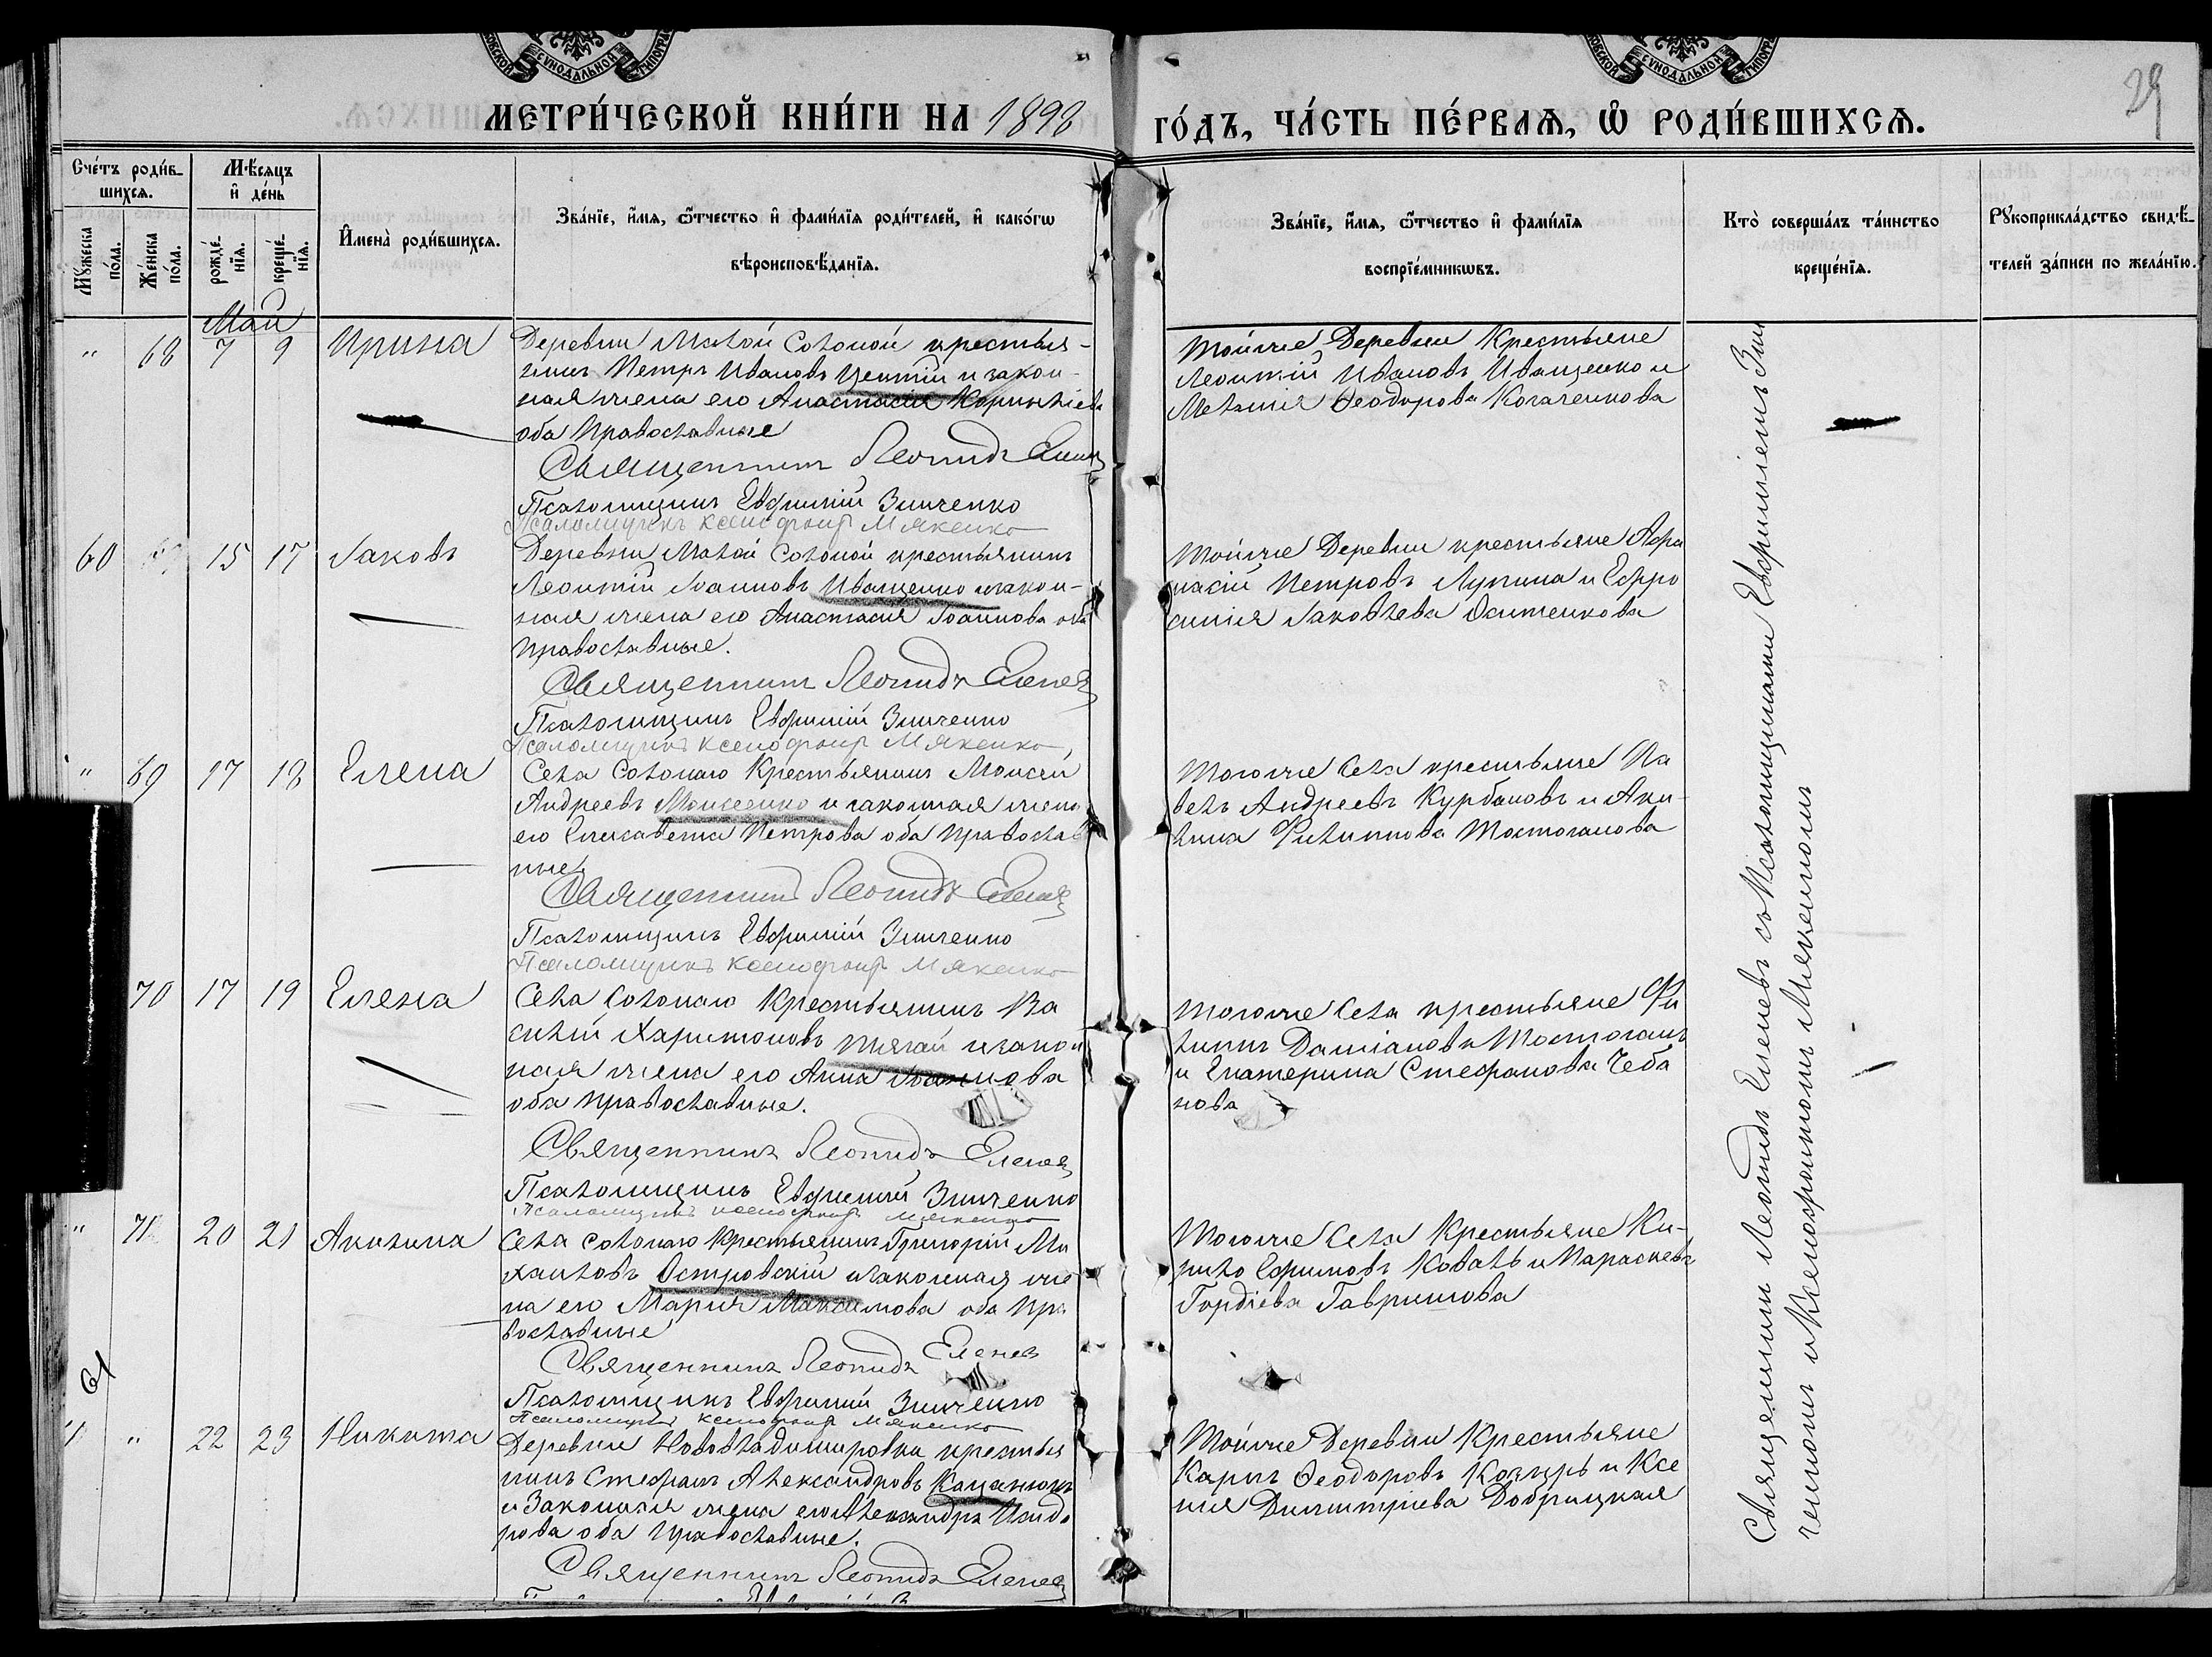 МЕТРИ́ЧЕСКОЙ КНИ́ГИ НА 1898
ГО́ДЪ, ЧА́СТЬ ПЕ́РВАѦ, Ѡ РОДИ́ВШИХСѦ.
29
Сче́тъ роди́в-
шихсѧ.
Мѣ́сѧцъ
и де́нь
Мꙋжеска по́ла.
Же́нска по́ла.
рожде́-нїѧ.
креще́-нїѧ.
Имена̀ роди́вшихсѧ.
Зва́нїе, и́мѧ, ѻ́тчество и фами́лїѧ роди́телей, и како́гѡ
вѣроисповѣ́данїѧ.
Зва́нїе, и́мѧ, ѻ́тчество и фами́лїѧ
воспрїе́мникѡвъ.
Кто̀ соверша́лъ та́инство
креще́нїѧ.
Рꙋкоприкла́дство свидѣ́-
телей за́писи по жела́нїю.
Май
" 68 7 9 Ирина
Деревни Малой Солоной крестья-
нинъ Петръ Ивановъ и закон-
ная жена его Анастасія Корниліева
оба Православные
Священникъ Леонидъ Еленев
Псаломщикъ Евфимій Зинченко
Псаломщикъ Ксенофонтъ Мякенко
Тойже Деревни Крестьяне
Леонтій Ивановъ Иващенко и
Меланія Ѳеодорова Косаченкова
60 15 17 Іаковъ
Деревни Малой Солоной крестьянинъ
Леонтій Іоанновъ Иващенко и закон-
ная жена его Анастасія Іоаннова оба
православные.
Священникъ Леонидъ Еленев
Псаломщикъ Евфимій Зинченко
Псаломщикъ Ксенофонтъ Мякенко
Тойже Деревни крестьяне Афа
насій Петровъ Лупина и Ефро
синія Іаковлева
" 69 17 18 Елена
Села Солонаго Крестьянинъ Моисей
Андреевъ Моисеенко и законная жена
его Елисавета Петрова оба православ
ные.
Священникъ Леонидъ Еленев
Псаломщикъ Евфимій Зинченко
Псаломщикъ Ксенофонтъ Мякенко
Тогоже Села крестьяне Па
велъ Андреевъ Курбановъ и Аки-
лина Филиппова Толстоганова
70 17 19 Елена
Села Солонаго Крестьянинъ Ва
силій Харитоновъ Тягай и закон
ная жена его Анна Іоаннова
оба православные.
Священникъ Леонидъ Еленев
Псаломщикъ Евфимій Зинченко
Псаломщикъ Ксенофонтъ Мякенко
Тогоже Села крестьяне Фи
липпъ Даміановъ Толстоганъ
и Екатерина Стефанова Чеба
нова
" 71 20 21 Акилина
Села Солонаго Крестьянинъ Григорій Ми
хаиловъ Островскій и законная же
на его Марія Максимова оба пра
вославные
Священникъ Леонидъ Еленев
Псаломщикъ Евфимій Зинченко
Псаломщикъ Ксенофонтъ Мякенко
Тогоже Села Крестьяне Ки-
рило Ефимовъ Коваль и Параскева
Гордіева Гавришова
61
" 22 23 Никита
Деревни Нововладимировки крестья
нинъ Стефанъ Александровъ Кацанюкъ
и Законная жена его Александра Исидо
рова оба Православные.
Священникъ Леонидъ Еленев
Тойже Деревни Крестьяне
Карпъ Ѳеодоровъ Козырь и Ксе
нія Димитріева Добрицкая
Священникъ Леонидъ Еленевъ съ Псаломщиками Евфиміемъ Зин
ченкомъ и Ксенофонтомъ Мякенкомъ